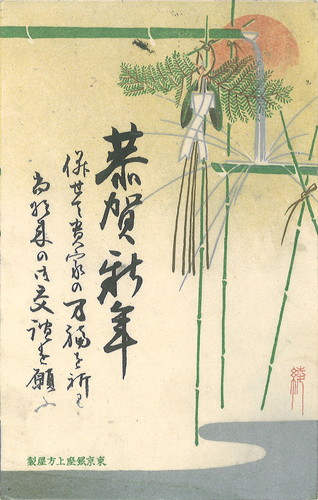 恭賀新年
併せて貴家の万福を祈り
尚將来の御交誼を願ふ
東京銀座上方屋製